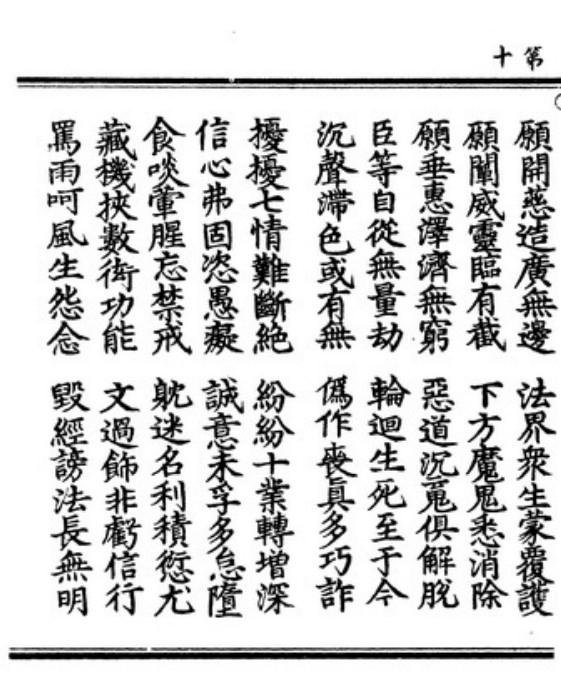 第十
願開慈造廣無邊　法界衆生蒙覆護
願闡威靈臨有截　下方魔鬼悉消除
願垂惠澤濟無窮　惡道沉冤俱解脫
臣等自從無量劫　輪迴生死至于今
沉聲滯色或有無　僞作喪眞多巧詐
擾擾七情難斷絶　紛紛十業轉增深
信心弗固恣愚癡　誠意未孚多怠墮
食啖葷腥忘禁戒　躭迷名利積愆尤
藏機挾數衒功能　文過飾非虧信行
罵雨呵風生怨念　毀經謗法長無明